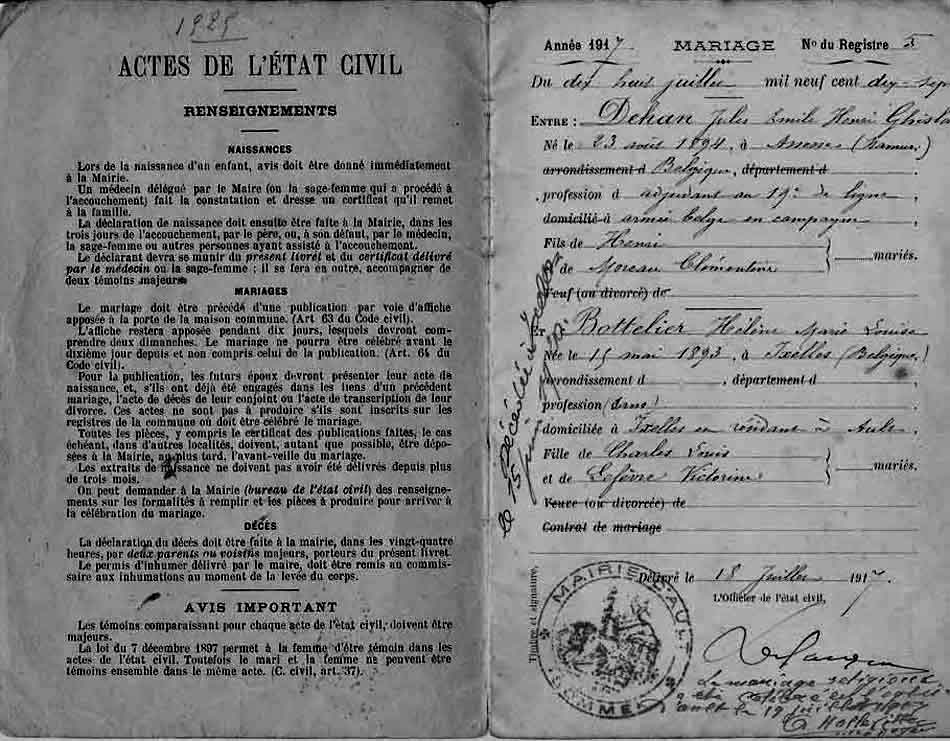 1925
ACTES DE L'ÉTAT CIVIL
RENSEIGNEMENTS
NAISSANCES
Lors de la naissance d'un enfant, avis doit être donné immédiatement
à la Mairie.
Un médecin délégué par le Maire (ou la sage-femme qui a procédé à
l'accouchement) fait la constatation et dresse un certificat qu'il remet
à la famille.
La déclaration de naissance doit ensuite être faite à la Mairie, dans les
trois jours de l'accouchement, par le père, ou, à son défaut, par le médecin,
la sage-femme ou autres personnes ayant assisté à l'accouchement.
Le déclarant devra se munir du présent livret et du certificat délivré
par le médecin ou la sage-femme ; il se fera en outre, accompagner de
deux témoins majeurs
MARIAGES
Le mariage doit être précédé d'une publication par voie d'affiche
apposée à la porte de la maison commune. (Art 63 du Code civil).
L'affiche restera apposée pendant dix jours, lesquels devront com-
prendre deux dimanches. Le mariage ne pourra être célébré avant le
dixième jour depuis et non compris celui de la publication. (Art. 64 du
Code civil).
Pour la publication, les futurs époux devront présenter leur acte de
naissance, et, s'ils ont déjà été engagés dans les liens d'un précédent
mariage, l'acte de décès de leur conjoint ou l'acte de transcription de leur
divorce. Ces actes ne sont pas à produire s'ils sont inscrits sur les
registres de la commune où doit être célébré le mariage.
Toutes les pièces, y compris le certificat des publications faites, le cas
échéant, dans d'autres localités, doivent, autant que possible, être dépo-
sées à la Mairie, au plus tard, l'avant-veille du mariage.
Les extraits de naissance ne doivent pas avoir été délivrés depuis plus
de trois mois.
On peut demander à la Mairie (bureau de l'état civil) des renseigne-
ments sur les formalités à remplir et les pièces à produire pour arriver à
la célébration du mariage.
DÉCÈS
La déclaration du décès doit être faite à la mairie, dans les vingt-quatre
heures, par deux parents ou voisins majeurs, porteurs du présent livret.
Le permis d'inhumer délivré par le maire, doit être remis au commis-
saire aux inhumations au moment de la levée du corps.
AVIS IMPORTANT
Les témoins comparaissant pour chaque acte de l'état civil, doivent être
majeurs.
La loi du 7 décembre 1897 permet à la femme d'être témoin dans les
actes de l'état civil. Toutefois le mari et la femme ne peuvent être
témoins ensemble dans le même acte. (C. civil, art. 37).
Année 1917 MARIAGE No du Registre 5
Du dix huit juillet mil neuf cent dix-sept
ENTRE : Dehan Jules Emile Henri Ghislain
Né le 23 août 1894, à Assesse (Namur)
arrondissement d Belgique, département d
profession d adjudant au 19e de ligne,
domicilié à armée belge en campagne
Fils de Henri
et de Moreau Clémentine } mariés.
Veuf (ou divorcé) de
Et Bottelier Hélène Marie Louise
Née le 15 mai 1893, à Ixelles (Belgique)
arrondissement d , département d
profession (sans)
domiciliée à Ixelles en résidence à Ault
Fille de Charles Louis
et de Lefèvre Victorine } mariés.
Veuve (ou divorcée) de
Contrat de mariage
Décédée à Ixelles
le 15 juin
Délivré le 18 Juillet 1917
L'Officier de l'état civil,
Timbre et signature.
MAIRIE D'AULT
SOMME
Le mariage religieux
a été célébré en l'église
d'Ault le 19 juillet 1917